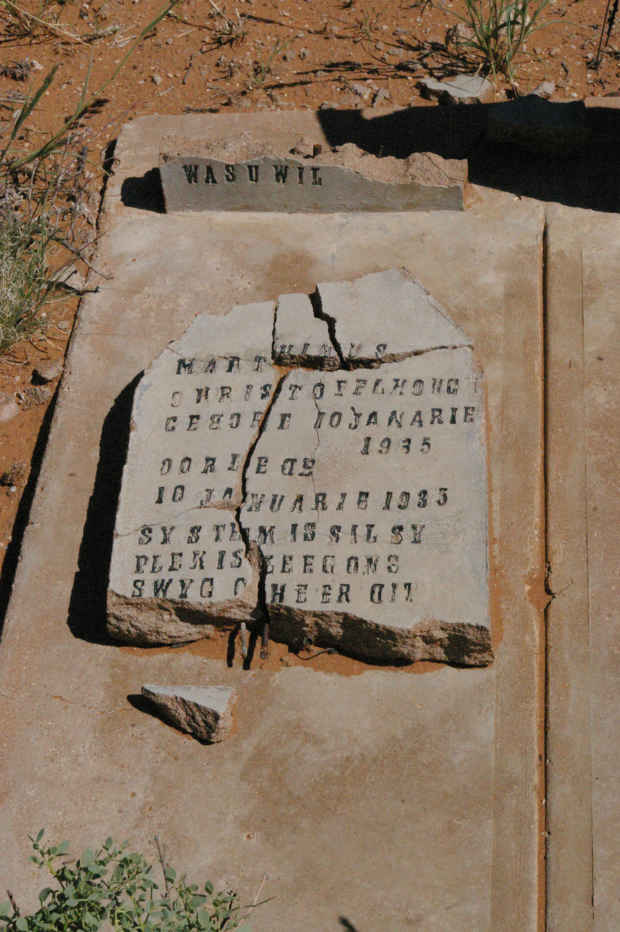 WAS U WIL
MARTHINUS
CHRISTOFFEL HONG
GEBORE 10 JANARIE
1935
OORLEDE
10 JANUARIE 1935
SY STEM IS SIL SY
PLEK IS LEEG ONS
SWYG O HEER DIT